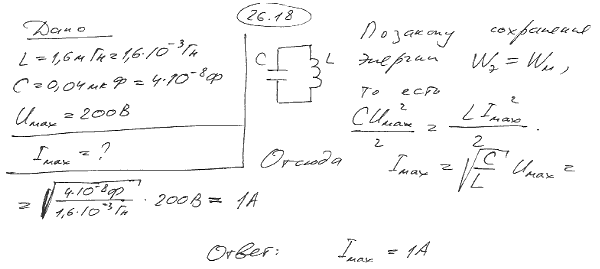 26.18
Дано
L = 1,6 мГн = 1,6·10⁻³ Гн
C = 0,04 мкФ = 4·10⁻⁸ Ф
Umax = 200 В
Imax = ?
C L
По закону сохранения
энергии Wэ = Wм,
то есть
CUmax²/2 = LImax²/2.
Отсюда Imax = √(C/L) Umax =
= √(4·10⁻⁸ Ф / 1,6·10⁻³ Гн) · 200 В = 1 А
Ответ: Imax = 1 А